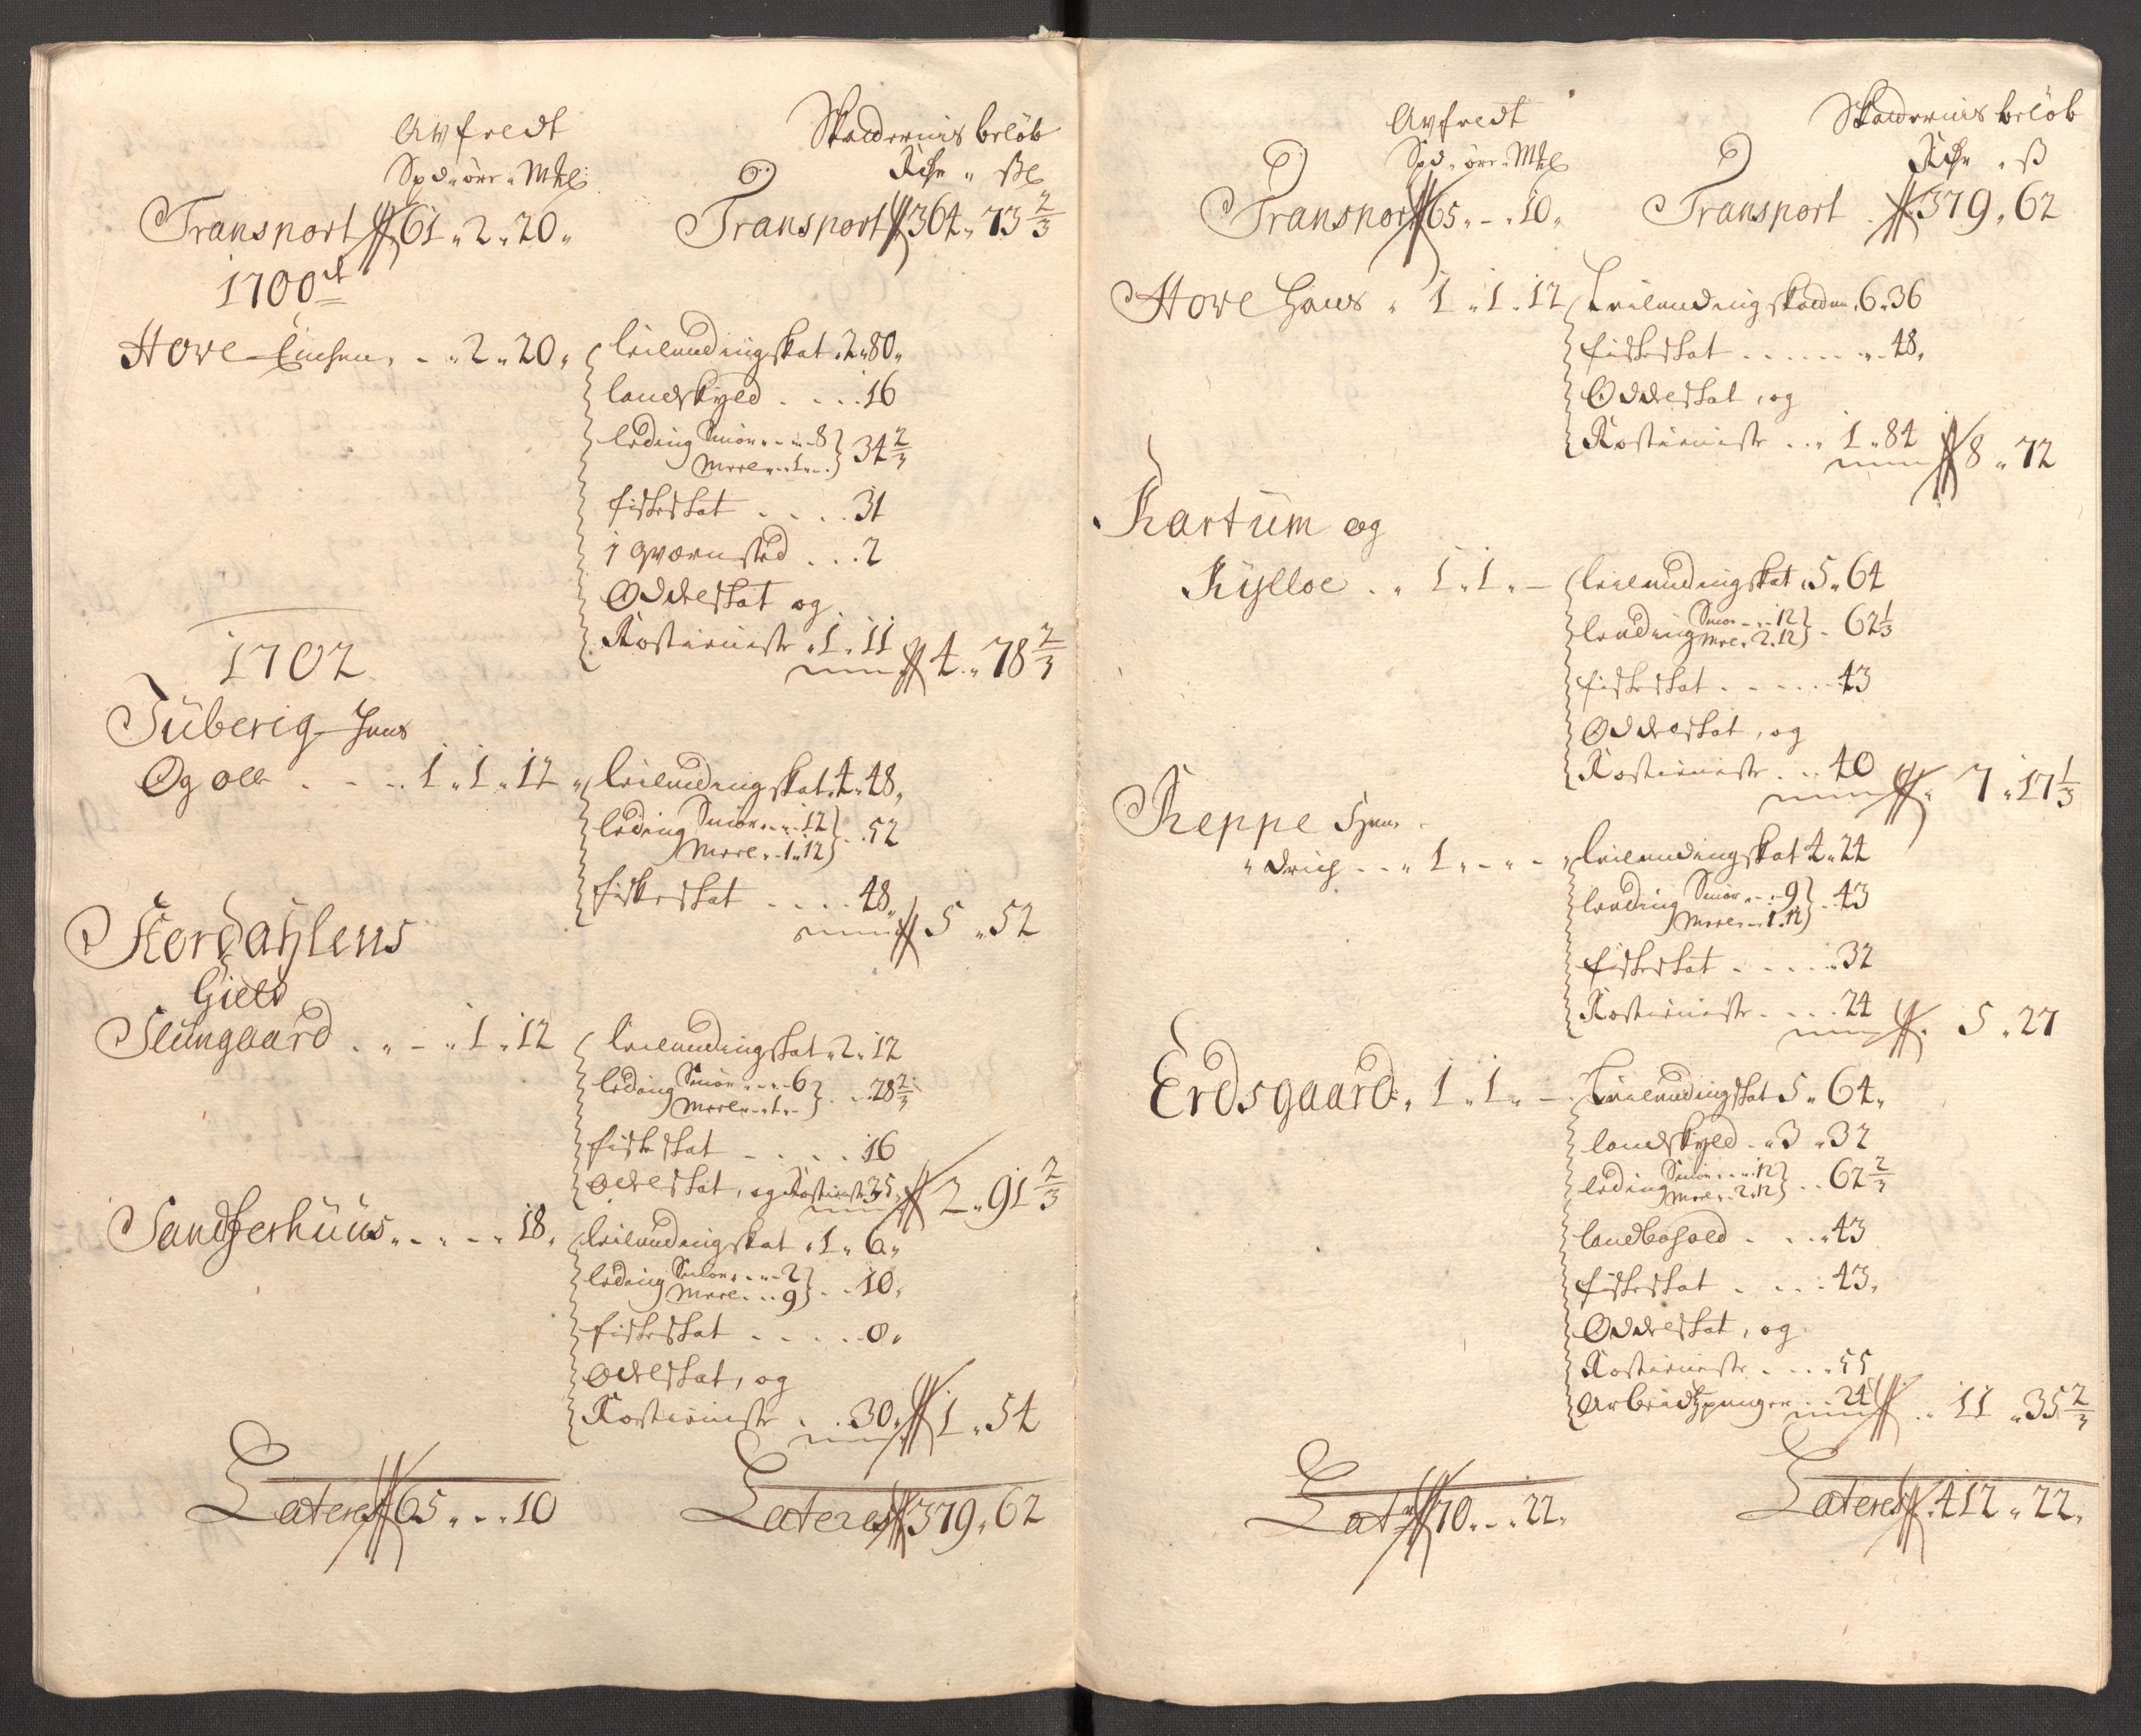 Avfredt
Spd „ ører „ Mkl
Skaudernis beløb
Rdr „ sz
Transport 61 „ 2 „ 20 „
Transport 364 „ 73 2/3
1700
Hove - „ 2 „ 20 „
leilendingskat „ 2 „ 80 „
landskyld . . . . 16
leding Smör „ - „ 8
Meel „ 1 „ 34 2/3
fiskeskat . . . . 31
1 qværnsted . . . 2
Oddelskat og
Rostieniste „ 1 „ 11
4 „ 78 2/3
1702
Tüberig
Og ole . . - . . 1 „ 1 „ 12 „
leilendingskat „ 4 „ 48 „
leding Smör „ 12
Meel „ 1 „ 12 . . 52
fiskeskat . . . . 48 „
5 „ 52
Størdahlens
Gield
Slungaard . „ - „ 1 „ 12
leilendingskat „ 2 „ 12
leding Smör „ 6
Meel „ 1 „ - . . 28 2/3
fiskeskat - . . . 16
Odelskat, og Rostienist 35 „
2 „ 91 2/3
Sandferhuus „ - . - „ 18 „
leilendingskat „ 1 „ 6 „
leding Smör „ 2
Meel . . 9 . . 10 „
fiskeskat . . . . 8 „
Odelskat, og
Rostieniste . . 30 „
1 „ 54
Lateres 65 „ - „ 10
Lateres 379 „ 62
Avfredt
Spd „ ører „ Mkl
Skaudernis beløb
Rdr „ s
Transport 65 „ - „ 10 „
Transport 379 „ 62
Hove Hans „ 1 „ 1 „ 12
Leilendingskatten „ 6 „ 36
fiskeskat . . . . . „ 48 „
Oddelskat, og
Rostieniste . . „ 1 „ 84
8 „ 72
Kartum og
Kylloe . „ 1 „ 1 „ -
leilendingskat „ 5 „ 64
leeding Smör „ 12
Meel „ 2 „ 12 - 62 1/3
fiskeskat . . . . . 43
Oddelskat, og
Rostieniste . . . 40
7 „ 17 1/3
Reppe Hen
„ drich . . „ 1 „ - „ -
leilendingskat 4 „ 24
leeding Smör „ 9
Meel „ 1 „ 12 . . 43
fiskeskat . . . . . 32
Rostieniste . . . . 24
5 „ 27
Erdsgaard „ 1 „ 1 „ -
Leilendingskat 5 „ 64 „
landskyld . „ 3 „ 32
leding Smör „ 12
Meel „ 2 „ 12 . . 62 2/3
. . . „ 43
fiskeskat . . . . 43 „
Oddelskat, og
Rostieniste . . . „ 55
Arbeidspenger . . 24
11 „ 35 2/3
Lat 70 „ - „ 22 „
Lateres 412 „ 22 „